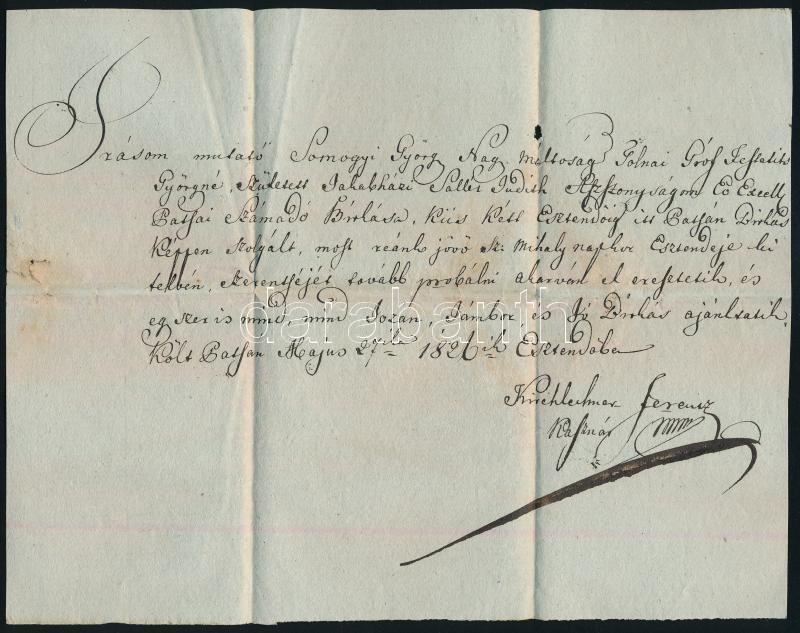 Irásom mutató Somogyi Györg Nag. Méltoság Tolnai Gróf Festetits
Györgné, Született Jakabházi Sallér Judith Aszszonyságom Eö Excell
Batsai Számadó Birkássa, kiis két Esztendőig itt Batsan Birkás
Képpen szolgált, most reánk jövő Sz. Mihaly napkor Esztendeje ki
telvén, szerentséjét tovább probálni akarván el eresztetik, és
egyszer is mind, mind Jozan, Jámbor és Jó Birkás ajánltatik.
Költ Batsan Majus 27ik 1826ik Esztendőbe
Kirchlechner Ferencz
Kasznár
darabanth